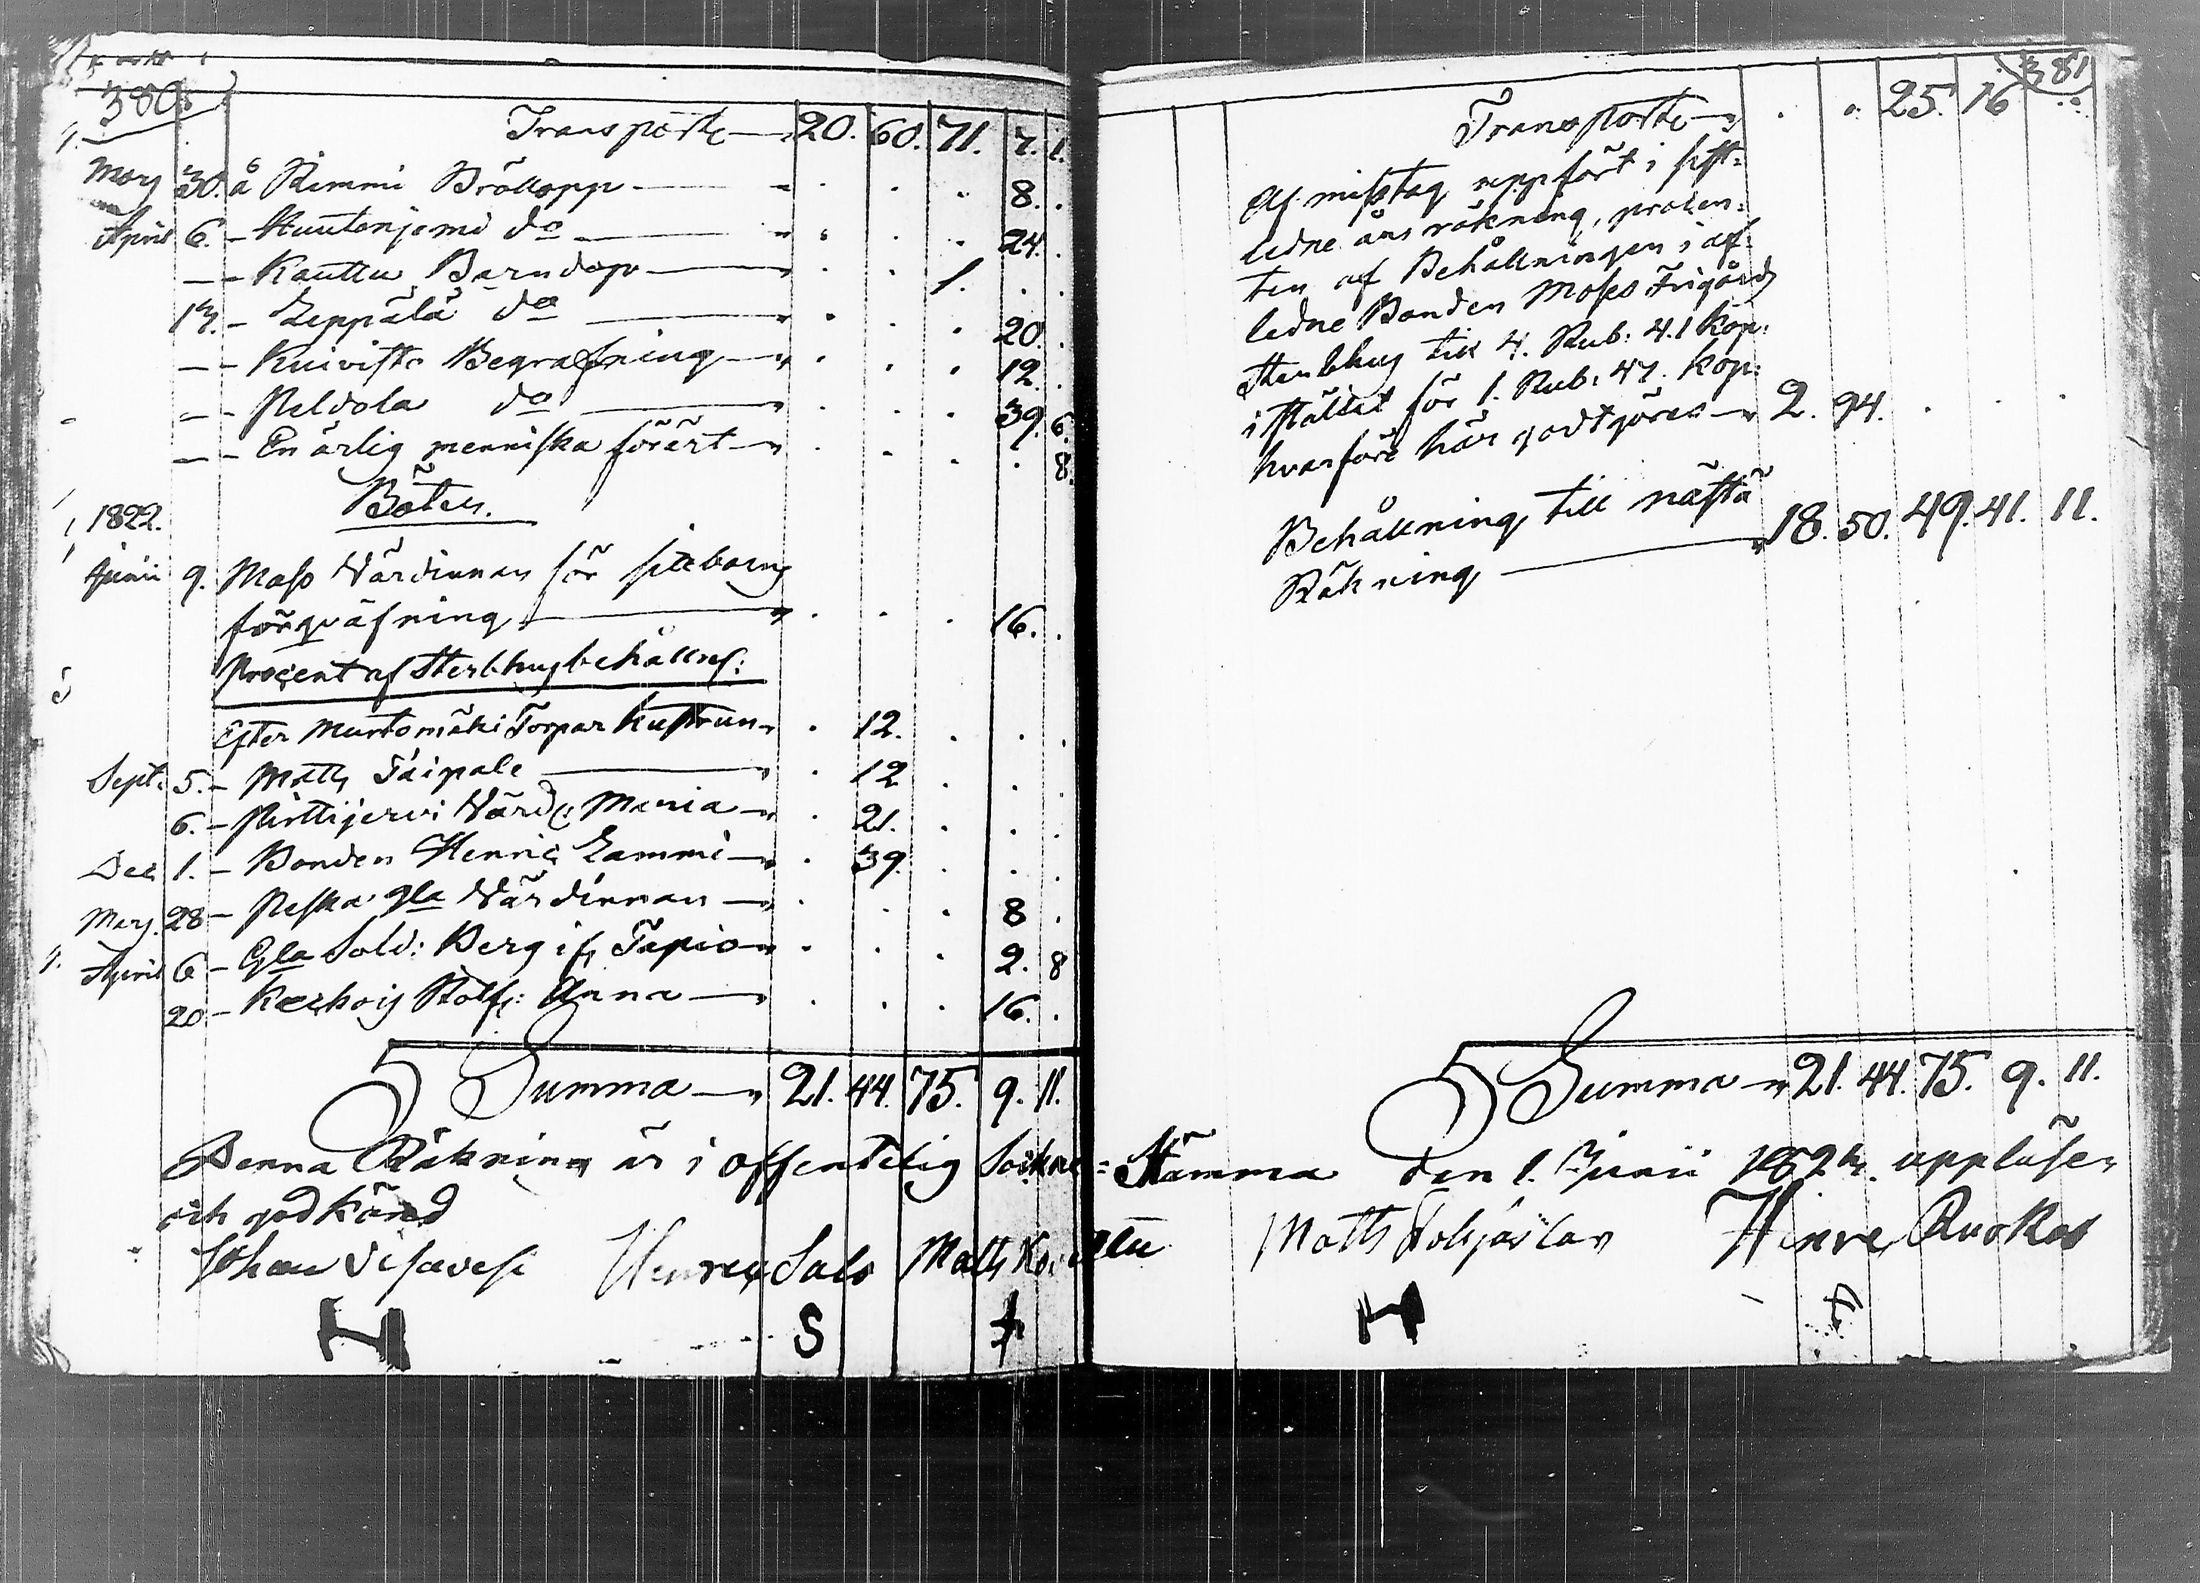 380.
Transport 20. 60. 71. 7. 1.
Mars 30. å Kimmi Bröllopp . . . 8. .
April 6. - Huutonjemi do . . . 24. .
- - Kauttu Barndop . . 1. . .
13. - Leppälä do . . . 20. .
- - Kuivisto Begrafning . . . 12. .
- - Peldola do . . . 39. 6.
- - En ärlig menniska förärt . . . . 8.
1822. Böter.
Junii 9. Maso Värdinnan för
förqväfning . . . 16. .
Procent af Sterbhusbehålln:
Efter Muntomäki Torpar hustrun . 12. . . .
Sept: 5. - Matts Taipale . 12 . . .
6. - Pirttijervi Värd: Maria . 21. . . .
Dec 1. - Bonden Henric Lammi . 39. . . .
Mars. 28 - Peska gla Värdinnan . . . 8 .
April 6 - Gla Sold: Berg if. Tapio . . . 2. 8
20 - Anna . . . 16. .
Summa 21. 44. 75. 9. 11.
381
Transport . . 25. 16 ..
Af misstag uppfört i sist-
ledne års räkning, procen-
ten af Behållningen i af-
ledne Bonden Moses Frigårds
Sterbhus till 4. Rub: 41 kop:
i stället för 1. Rub: 47. kop:
hvarföre här godtgöres 2. 94. . . .
Behållning till nästa
Räkning 18. 50. 49. 41. 11.
Summa 21. 44. 75. 9. 11.
Denna Räkning är i offentelig Sockne-Stämma den 1. Junii 1823. uppläsen
och godkänd
Johan Henric Salo Matts Matts Henric Ruokas
H S H